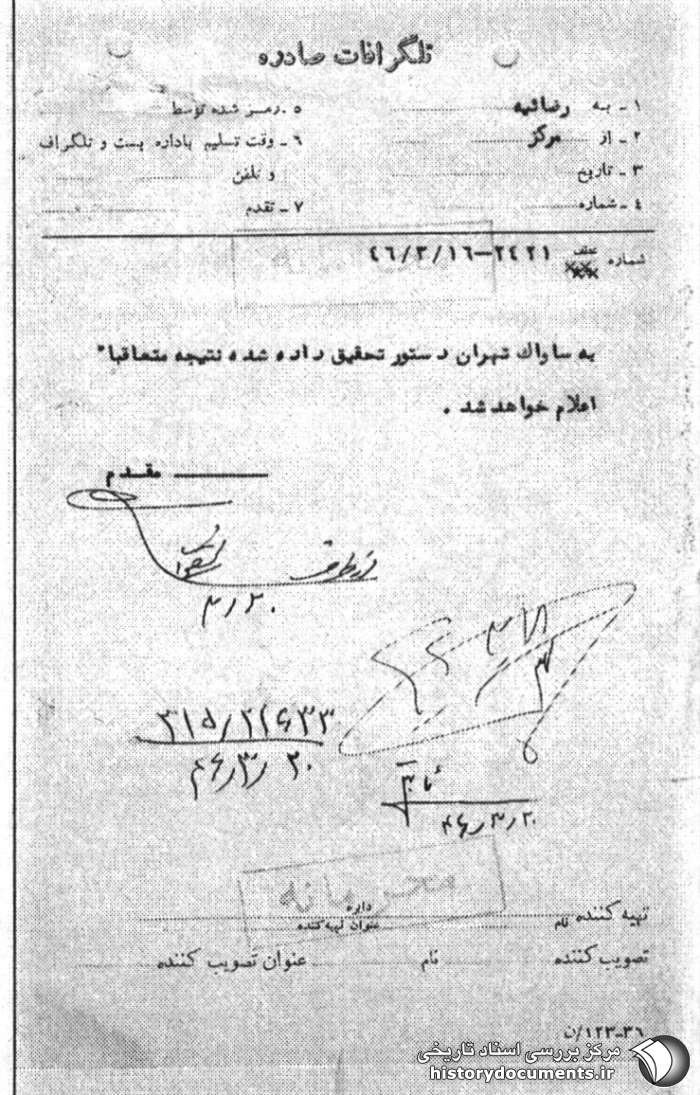 تلگرافات صادره
۱ - به رضائیه
۵ . رمز شده توسط
۲ - از مرکز
۶ - وقت تسلیم باداره پست و تلگراف
۳ - تاریخ
و تلفن
۴ - شماره
۷ - تقدم
شماره عطف ۲۴۲۱-۴۶/۳/۱۶
به ساواك تهران دستور تحقیق داده شده نتیجه متعاقبا"
اعلام خواهد شد .
مقدم
از طرف
۳/۲۰
۳۱۵/۲۱۶۳۳
۴۶/۳/۲۰
۴۶/۳/۲۰
محرمانه
تهیه کننده نام عنوان تهیه کننده دایره
تصویب کننده نام عنوان تصویب کننده
۳۶-۱۲۳/ن
مرکز بررسی اسناد تاریخی
historydocuments.ir